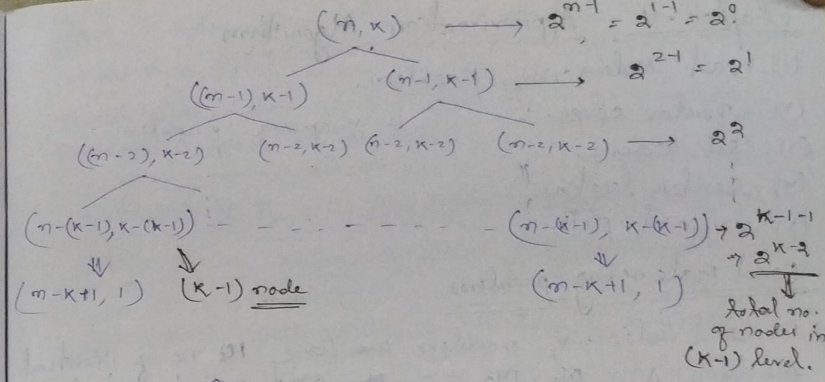 (n, k) → 2^(n-1) = 2^(1-1) = 2^0
((n-1), k-1) (n-1, k-1) → 2^(2-1) = 2^1
((n-2), k-2) (n-2, k-2) (n-2, k-2) (n-2, k-2) → 2^2
(n-(k-1), k-(k-1)) - - - - - - - (n-(k-1), k-(k-1)) → 2^(k-1-1)
→ 2^(k-2)
(n-k+1, 1) (k-1) node (n-k+1, 1)
total no.
of nodes in
(k-1) level.